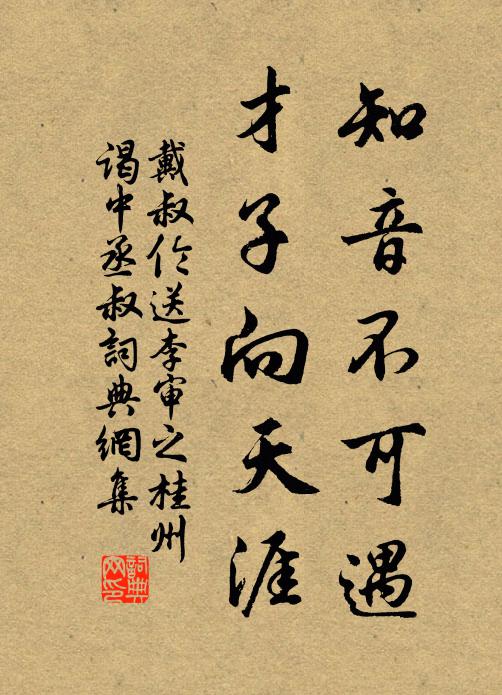 知音不可遇
才子向天涯
戴叔伦送李审之桂州
谒中丞叔詞典網集
詞典网印